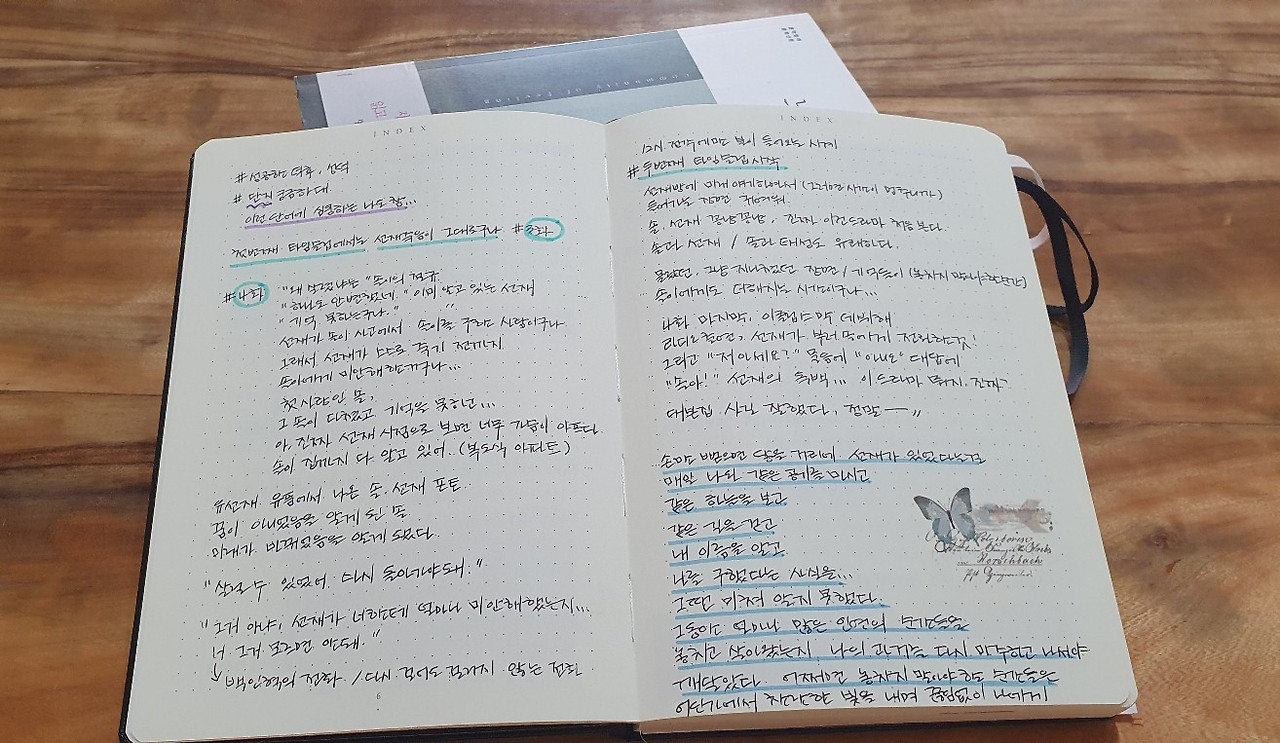 INDEX
# 성공한 덕후, 선덕
# 단지 궁금하대
이런 단어에 심쿵하는 나도 참...
첫번째 타임슬립에서는 선재죽음이 그대로구나 #3화
#4화
솔이의 절규
"하나도 안변했네." 이미 알고 있는 선재
"기억 못하는구나."
선재가 솔이 사고에서 솔이를 구한 사람이구나
그래서 선재가 죽기 전까지
솔이에게 미안해한거구나...
첫사랑인 솔,
그 솔이 다쳤고 기억을 못하고...
아, 진짜 선재 시점으로 보면 너무 가슴이 아프다
솔이 집까지 다 알고 있어. (복도식 아파트)
류선재 유품에서 나온 솔, 선재 포토
꿈이 아니었음을 알게 된 솔
미래가 바뀌었음을 알게 되었다.
"살릴 수 있었어. 다시 돌아가야돼."
"그거 아냐, 선재가 너한테 얼마나 미안해했는지...
너 그거 모르면 안돼."
백인혁의 전화 / 다시 걸어도 걸리지 않는 전화
6
INDEX
12시 전각에만 불이 들어오는 시계
#두번째 타임슬립 시작
들어가는 장면 귀여워.
솔, 선재 꽁냥꽁냥, 진짜 이런드라마 처음 본다.
솔과 선재 / 솔과 태성도 유쾌하다.
몰랐던, 그냥 지나쳤던 장면/기억들이 (놓치지 말아야할순간)
솔이에게도 더해지는 시간이구나...
4화 마지막, 이클립스 막 데뷔해
라디오출연, 선재가 부러 솔에게 전화하는것!
그리고 "저 아세요?" 물음에 "아니요" 대답에
"솔아!" 선재의 독백... 이 드라마 뭐지. 진짜
대본집 사길 잘했다. 정말 —"
손만 뻗으면 닿을 거리에 선재가 있었다는걸
매일 나와 같은 공기를 마시고
같은 하늘을 보고
같은 길을 걷고
내 이름을 알고
나를 구했다는 사실을...
그땐 미처 알지 못했다.
그동안 얼마나 많은 인연의 순간들을
놓치고 살아왔는지, 나의 과거를 다시 마주하고 나서야
깨달았다. 어쩌면 놓치지 말아야 하는 순간들은
어딘가에서 찬란한 빛을 내며 끊임없이 나에게